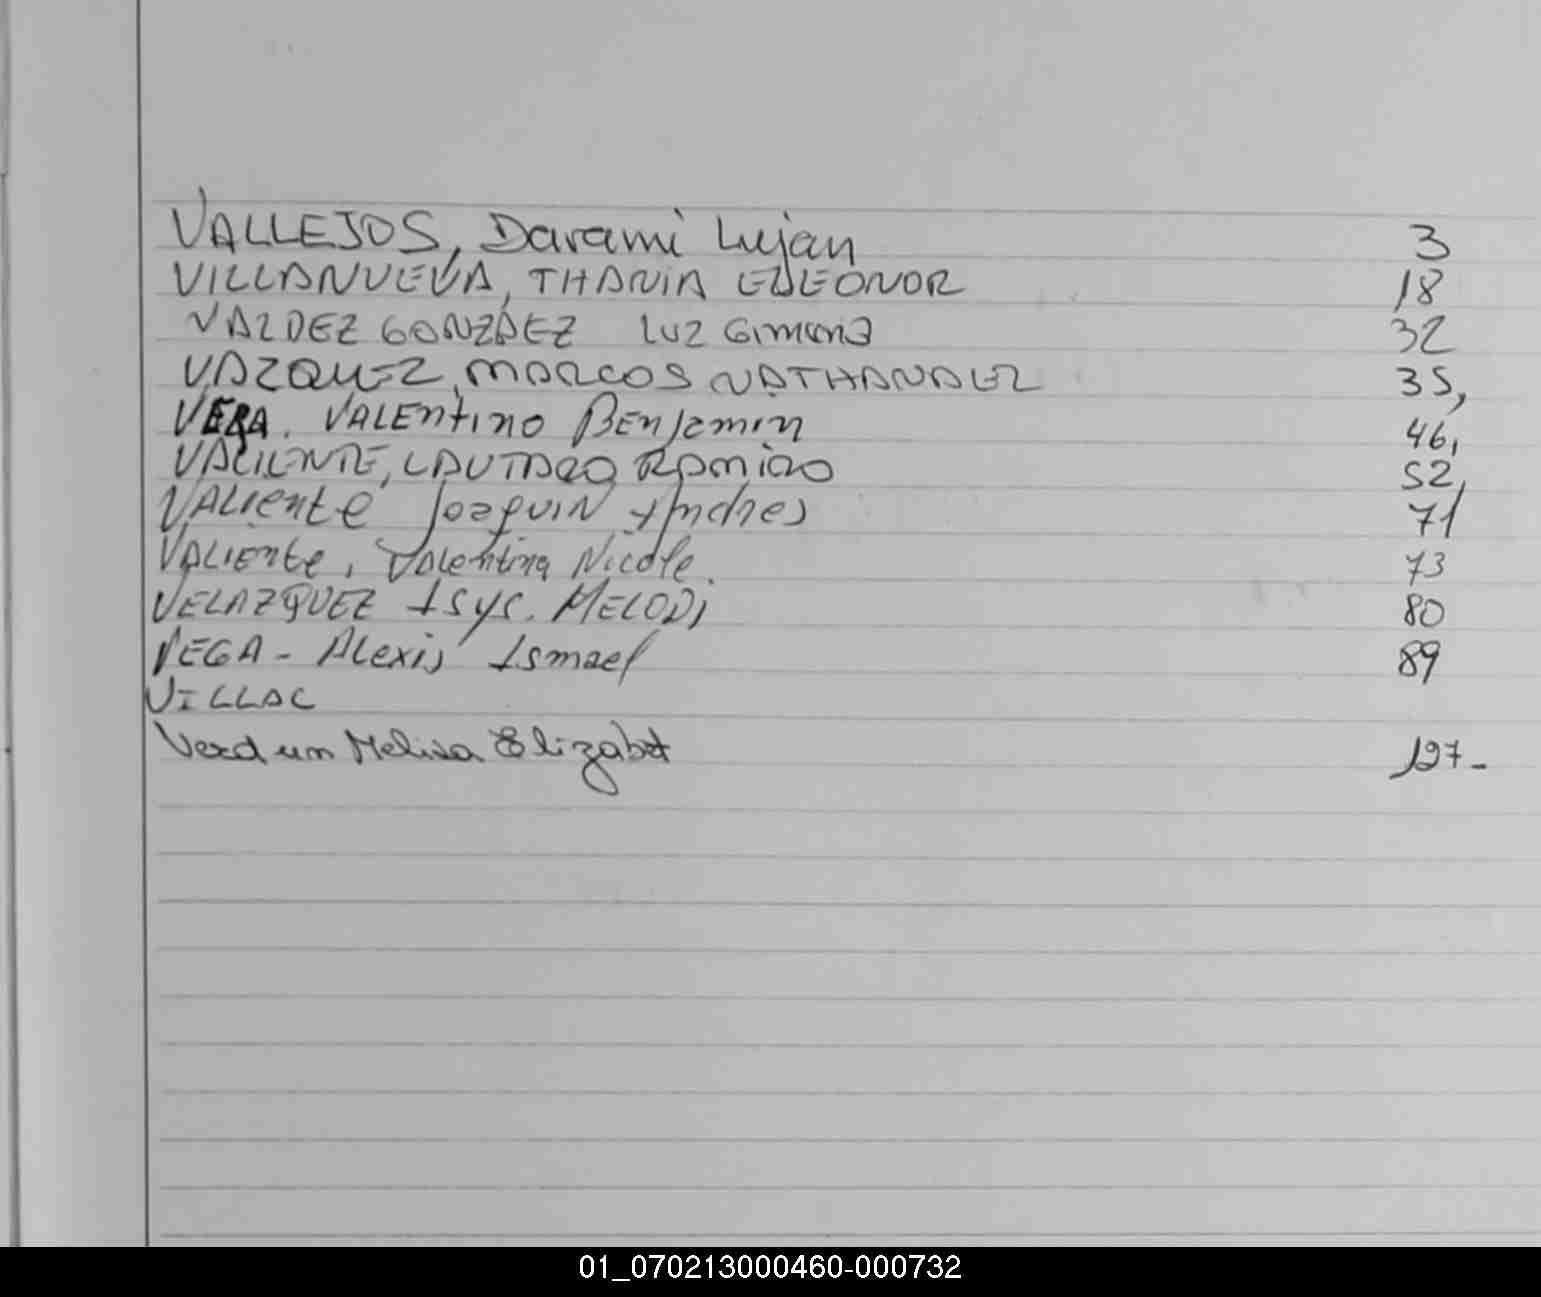 VALLEJOS, Darami Lujan 3
VILLANUEVA, THANIA ELEONOR 18
VALDEZ GONZALEZ LUZ Gimena 32
VAZQUEZ, MARCOS NATHANAEL 35,
VERA. VALENTINO BENJAMIN 46,
VALIENTE, LAUTARO RAMIRO 52,
VALIENTE JOAQUIN Andres 71
VALIENTE, Valentina Nicole. 73
VELAZQUEZ Isys. MELODI 80
VEGA - Alexis Ismael 89
VILLAC
Verdun Melisa Elizabet 197-
01_070213000460-000732